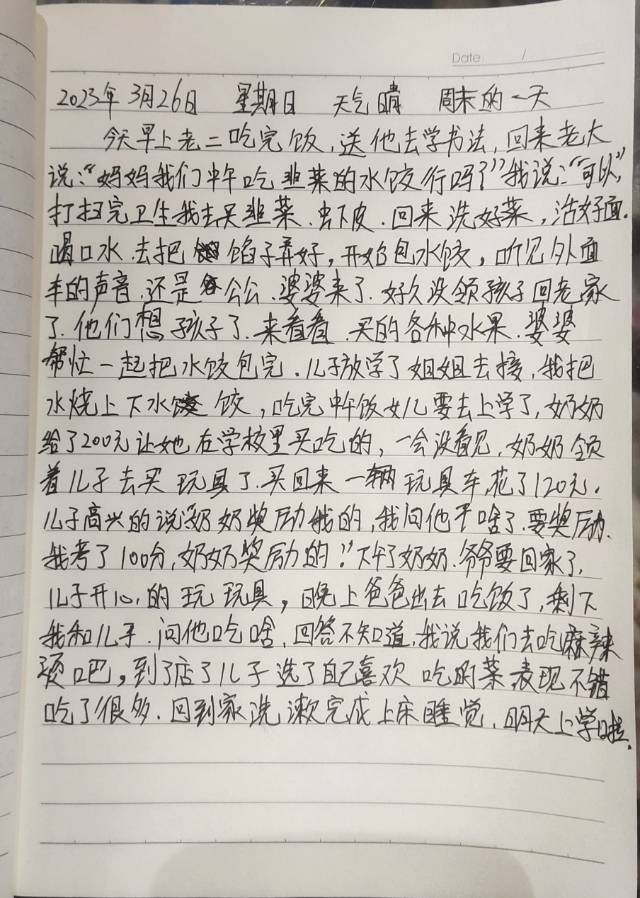 Date /
2023年3月26日 星期日 天气晴 周末的一天
今天早上老二吃完饭,送他去学书法,回来老大
说:“妈妈我们中午吃韭菜的水饺行吗?”我说:“可以”,
打扫完卫生我去买韭菜、虾皮.回来洗好菜,活好面.
喝口水.去把馅子弄好,开始包水饺,听见外面
车的声音.还是公公.婆婆来了.好久没领孩子回老家
了.他们想孩子了.来看看.买的各种水果.婆婆
帮忙一起把水饺包完.儿子放学了姐姐去接,我把
水烧上下水饺,吃完中午饭女儿要去上学了,奶奶
给了200元让她在学校里买吃的,一会没看见,奶奶领
着儿子去买玩具了.买回来一辆玩具车,花了120元.
儿子高兴的说“奶奶奖励我的,我问他干啥了.要奖励.
我考了100分,奶奶奖励的”.下午了奶奶.爷爷要回家了,
儿子开心的玩玩具,晚上爸爸出去吃饭了,剩下
我和儿子.问他吃啥.回答不知道,我说我们去吃麻辣
烫吧,到了店了儿子选了自己喜欢吃的菜表现不错
吃了很多.回到家洗漱完成上床睡觉,明天上学啦.